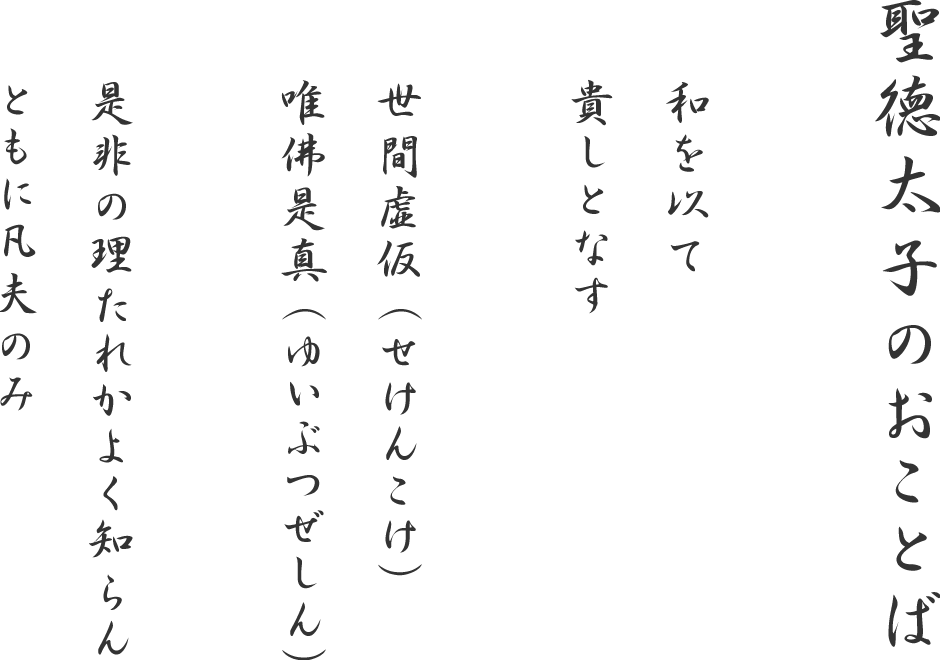 聖徳太子のおことば
和を以て
貴しとなす
世間虚仮（せけんこけ）
唯佛是真（ゆいぶつぜしん）
是非の理たれかよく知らん
ともに凡夫のみ